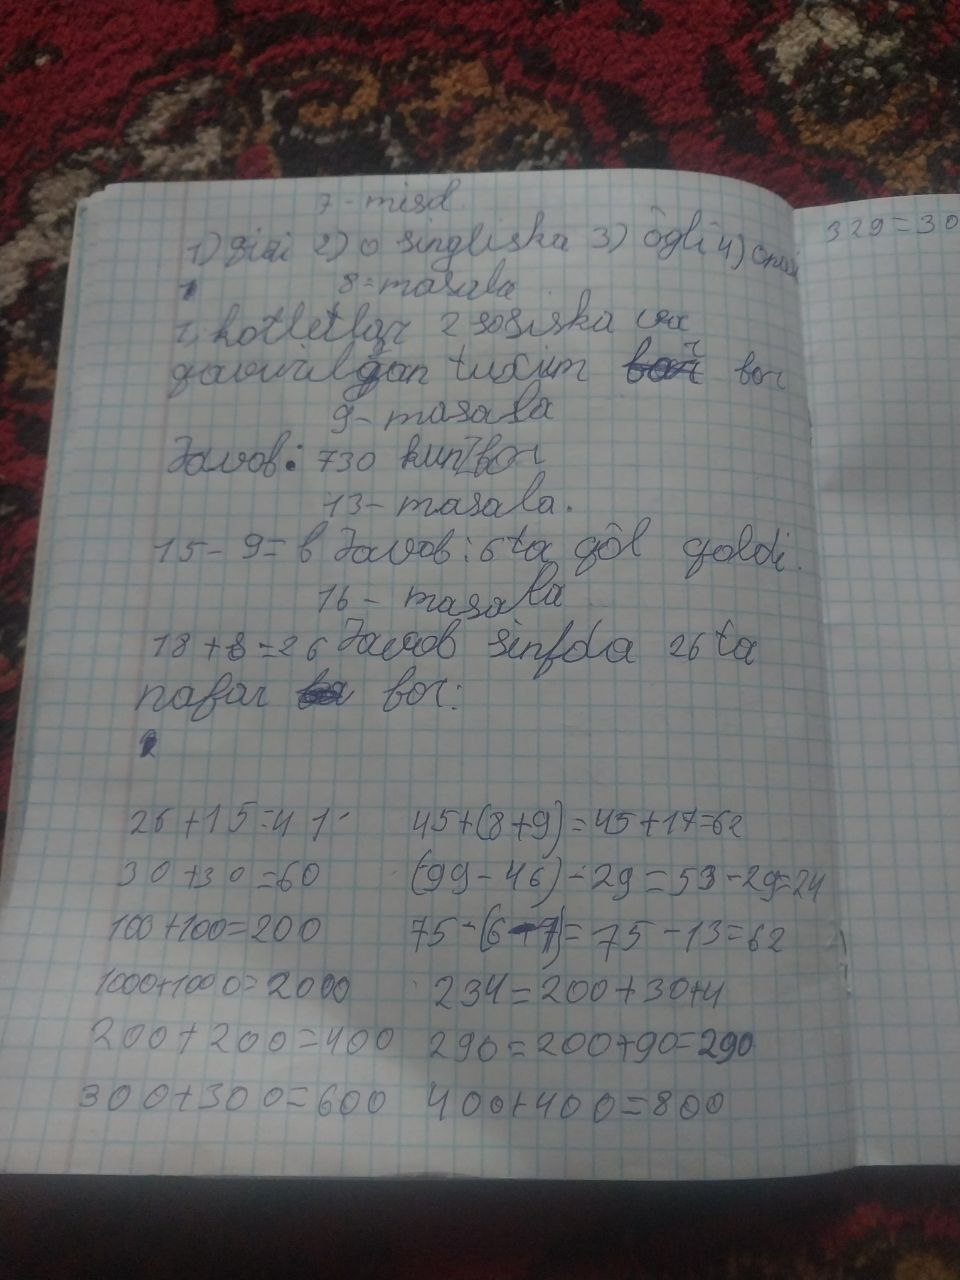 7 - misol
1) Singlisi 2) o singliska 3) ōgli 4) onasi
8 = masala
2 kotletlar 2 sosiska va
qavurilgan tuxum bor
9 - masala
Javob: 730 kun bor
13 - masala.
15 - 9 = 6 Javob: 6 ta gōl qoldi.
16 - masala
18 + 8 = 26 Javob sinfda 26 ta
nafar bor:
26 + 15 = 41 45 + (8 + 9) = 45 + 17 = 62
30 + 30 = 60 (99 - 46) - 29 = 53 - 29 = 24
100 + 100 = 200 75 - (6 + 7) = 75 - 13 = 62
1000 + 1000 = 2000 234 = 200 + 30 + 4
200 + 200 = 400 290 = 200 + 90 = 290
300 + 300 = 600 400 + 400 = 800
329 = 30